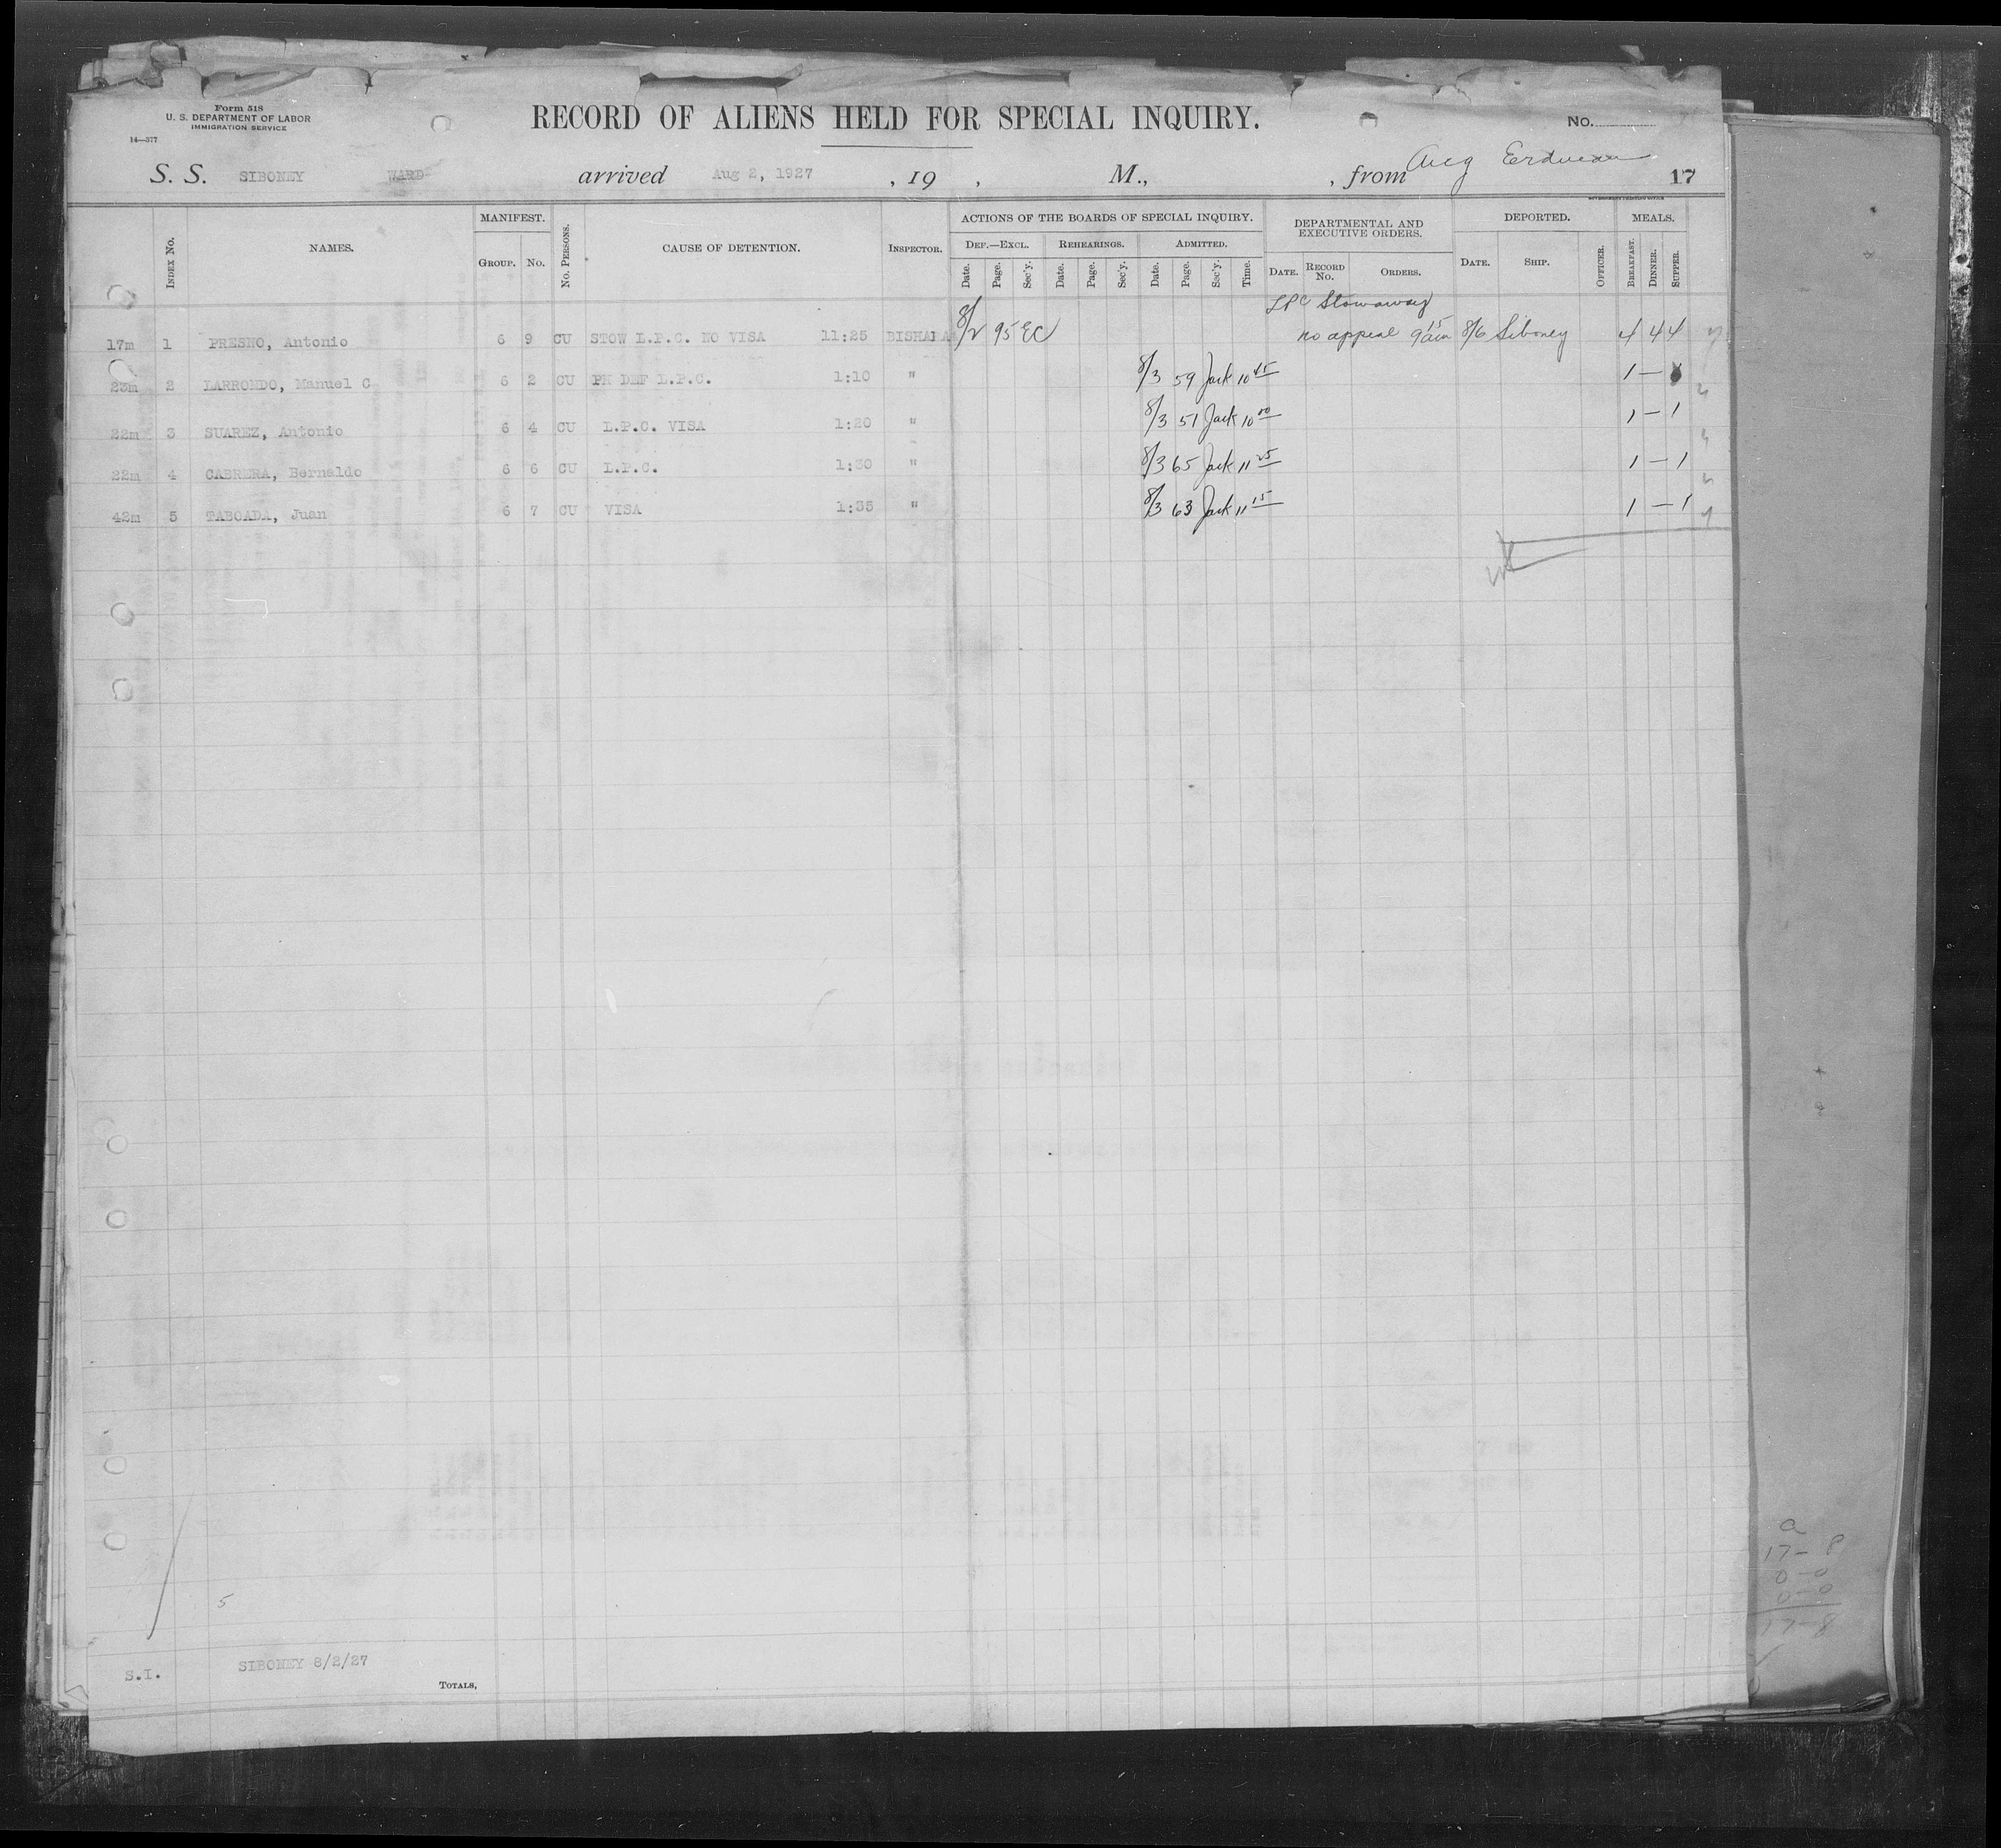 Form 518
U. S. DEPARTMENT OF LABOR
IMMIGRATION SERVICE
14—377
RECORD OF ALIENS HELD FOR SPECIAL INQUIRY.
No.
S. S. SIBONEY WARD arrived Aug 2, 1927 , 19 , M., , from 17
INDEX No. NAMES. MANIFEST. GROUP. No. No. PERSONS. CAUSE OF DETENTION. INSPECTOR. ACTIONS OF THE BOARDS OF SPECIAL INQUIRY. DEPARTMENTAL AND EXECUTIVE ORDERS. DEPORTED. MEALS.
DEF.—EXCL. REHEARINGS. ADMITTED.
Date. Page. Sec'y. Date. Page. Sec'y. Date. Page. Sec'y. Time. DATE. RECORD No. ORDERS. DATE. SHIP. OFFICER. BREAKFAST. DINNER. SUPPER.
LPC Stowaway
17m 1 PRESNO, Antonio 6 9 CU STOW L.P.C. NO VISA 11:25 BISHARA 8/2 95 EC no appeal 9 15 am 8/6 Siboney 4 4 4
23m 2 LARRONDO, Manuel C 6 2 CU PH DEF L.P.C. 1:10 " 8/3 59 Jack 10 45 1 —
22m 3 SUAREZ, Antonio 6 4 CU L.P.C. VISA 1:20 " 8/3 51 Jack 10 00 1 — 1
22m 4 CABRERA, Bernaldo 6 6 CU L.P.C. 1:30 " 8/3 65 Jack 11 25 1 — 1
42m 5 TABOADA, Juan 6 7 CU VISA 1:35 " 8/3 63 Jack 11 15 1 — 1
5
S.I. SIBONEY 8/2/27
TOTALS,
17 - 8
0 - 0
0 - 0
17 - 8